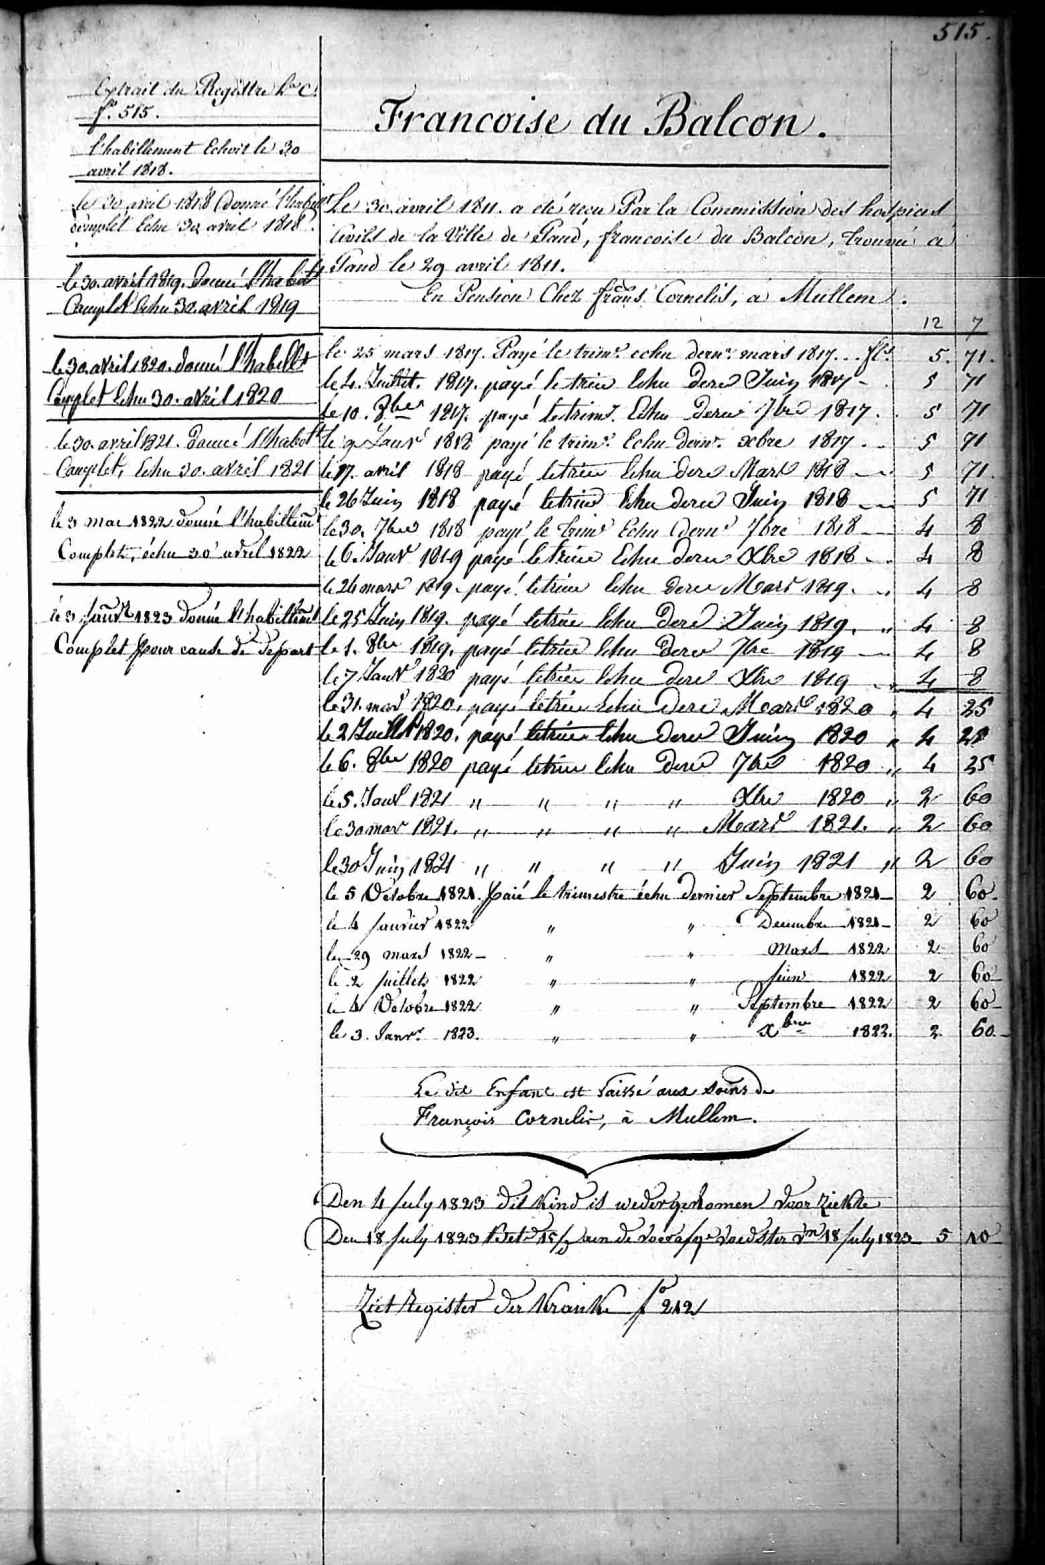 515.
Extrait du Registre L^a C.
f° 515.
l'habillement Echoit le 30
avril 1818.
le 30 avril 1818 donné l'habillt
complet Echu 30 avril 1818.
le 30. avril 1819. donné l'habillt
Complet Echu 30. avril 1819
le 30. avril 1820. donné l'habillt
Complet Echu 30. avril 1820
le 30. avril 1821. donné l'habillt
Complet, echu 30. avril 1821
le 3 mai 1822 donné l'habillemt
Complet, échu 30 avril 1822
le 3 Janvr 1823 donné l'habillemt
Complet pour cause de depart
Francoise du Balcon.
Le 30 avril 1811. a eté recu Par la Commission des hospices
Civils de la Ville de Gand, francoise du Balcon, trouvée a
Gand le 29 avril 1811.
En Pension Chez frans. Cornelis, a Mullem.
12 7
le 25 mars 1817. Payé le trimr. echu dernr. mars 1817... fls. 5. 71.
le 4. Juillit. 1817. payé le trim Echu dere Juin 1817 - 5 71
le 10. 8bre 1817. payé le trimr. Echu dere 7bre 1817. 5 71
le 7 Janvr 1818 payé le trimr. Echu dernr. xbre 1817. 5 71
le 17. avril 1818 payé le trim Echu dere Mars 1818 - 5 71.
le 26 Juin 1818 payé le trim Echu dere Juin 1818 - 5 71
le 30. 7bre 1818 payé le trimr Echu dernr 7bre 1818 - 4 8
le 6. Janvr 1819 payé le trim Echu dere Xbre 1818 - 4 8
le 26 mars 1819. payé le trim Echu dere Mars 1819. 4 8
le 25 Juin 1819. payé le trim Echu dere Juin 1819. " 4 8
le 1. 8bre 1819. payé le trim Echu dere 7bre 1819 - 4 8
le 7 Janvr 1820 payé le trim Echu dere Xbre 1819 4 8
le 31. mars 1820. payé le trim Echu dere Mars 1820 " 4 25
le 2 Juillet 1820. payé le trim Echu dere Juin 1820 " 4 25
le 6. 8bre 1820 payé le trim Echu dere 7bre 1820 " 4 25
le 5. Janvr 1821 " " " " Xbre 1820 " 2 60
le 30 mars 1821. " " " " Mars 1821. " 2 60
le 30 Juin 1821 " " " " Juin 1821 " 2 60
le 5 Octobre 1821. Paié le trimestre échu dernier Septembre 1821 - 2 60
le 4 Janvier 1822 " " Decembre 1821 - 2 60
le 29 mars 1822 - " " Mars 1822 2 60
le 2 juillet 1822 " " juin 1822 2 60
le 4 Octobre 1822 " " Septembre 1822 2 60
le 3. Janvr. 1823. " " Xbre 1822. 2 60
Le dit Enfant est laissé aux soins de
François Cornelis, à Mullem.
Den 4 July 1823 dit kind is wedergekomen door ziekte
Den 18 July 1823 Betd aen de voedster 18 July 1823 5 10
Ziet Register der Kranke f° 242